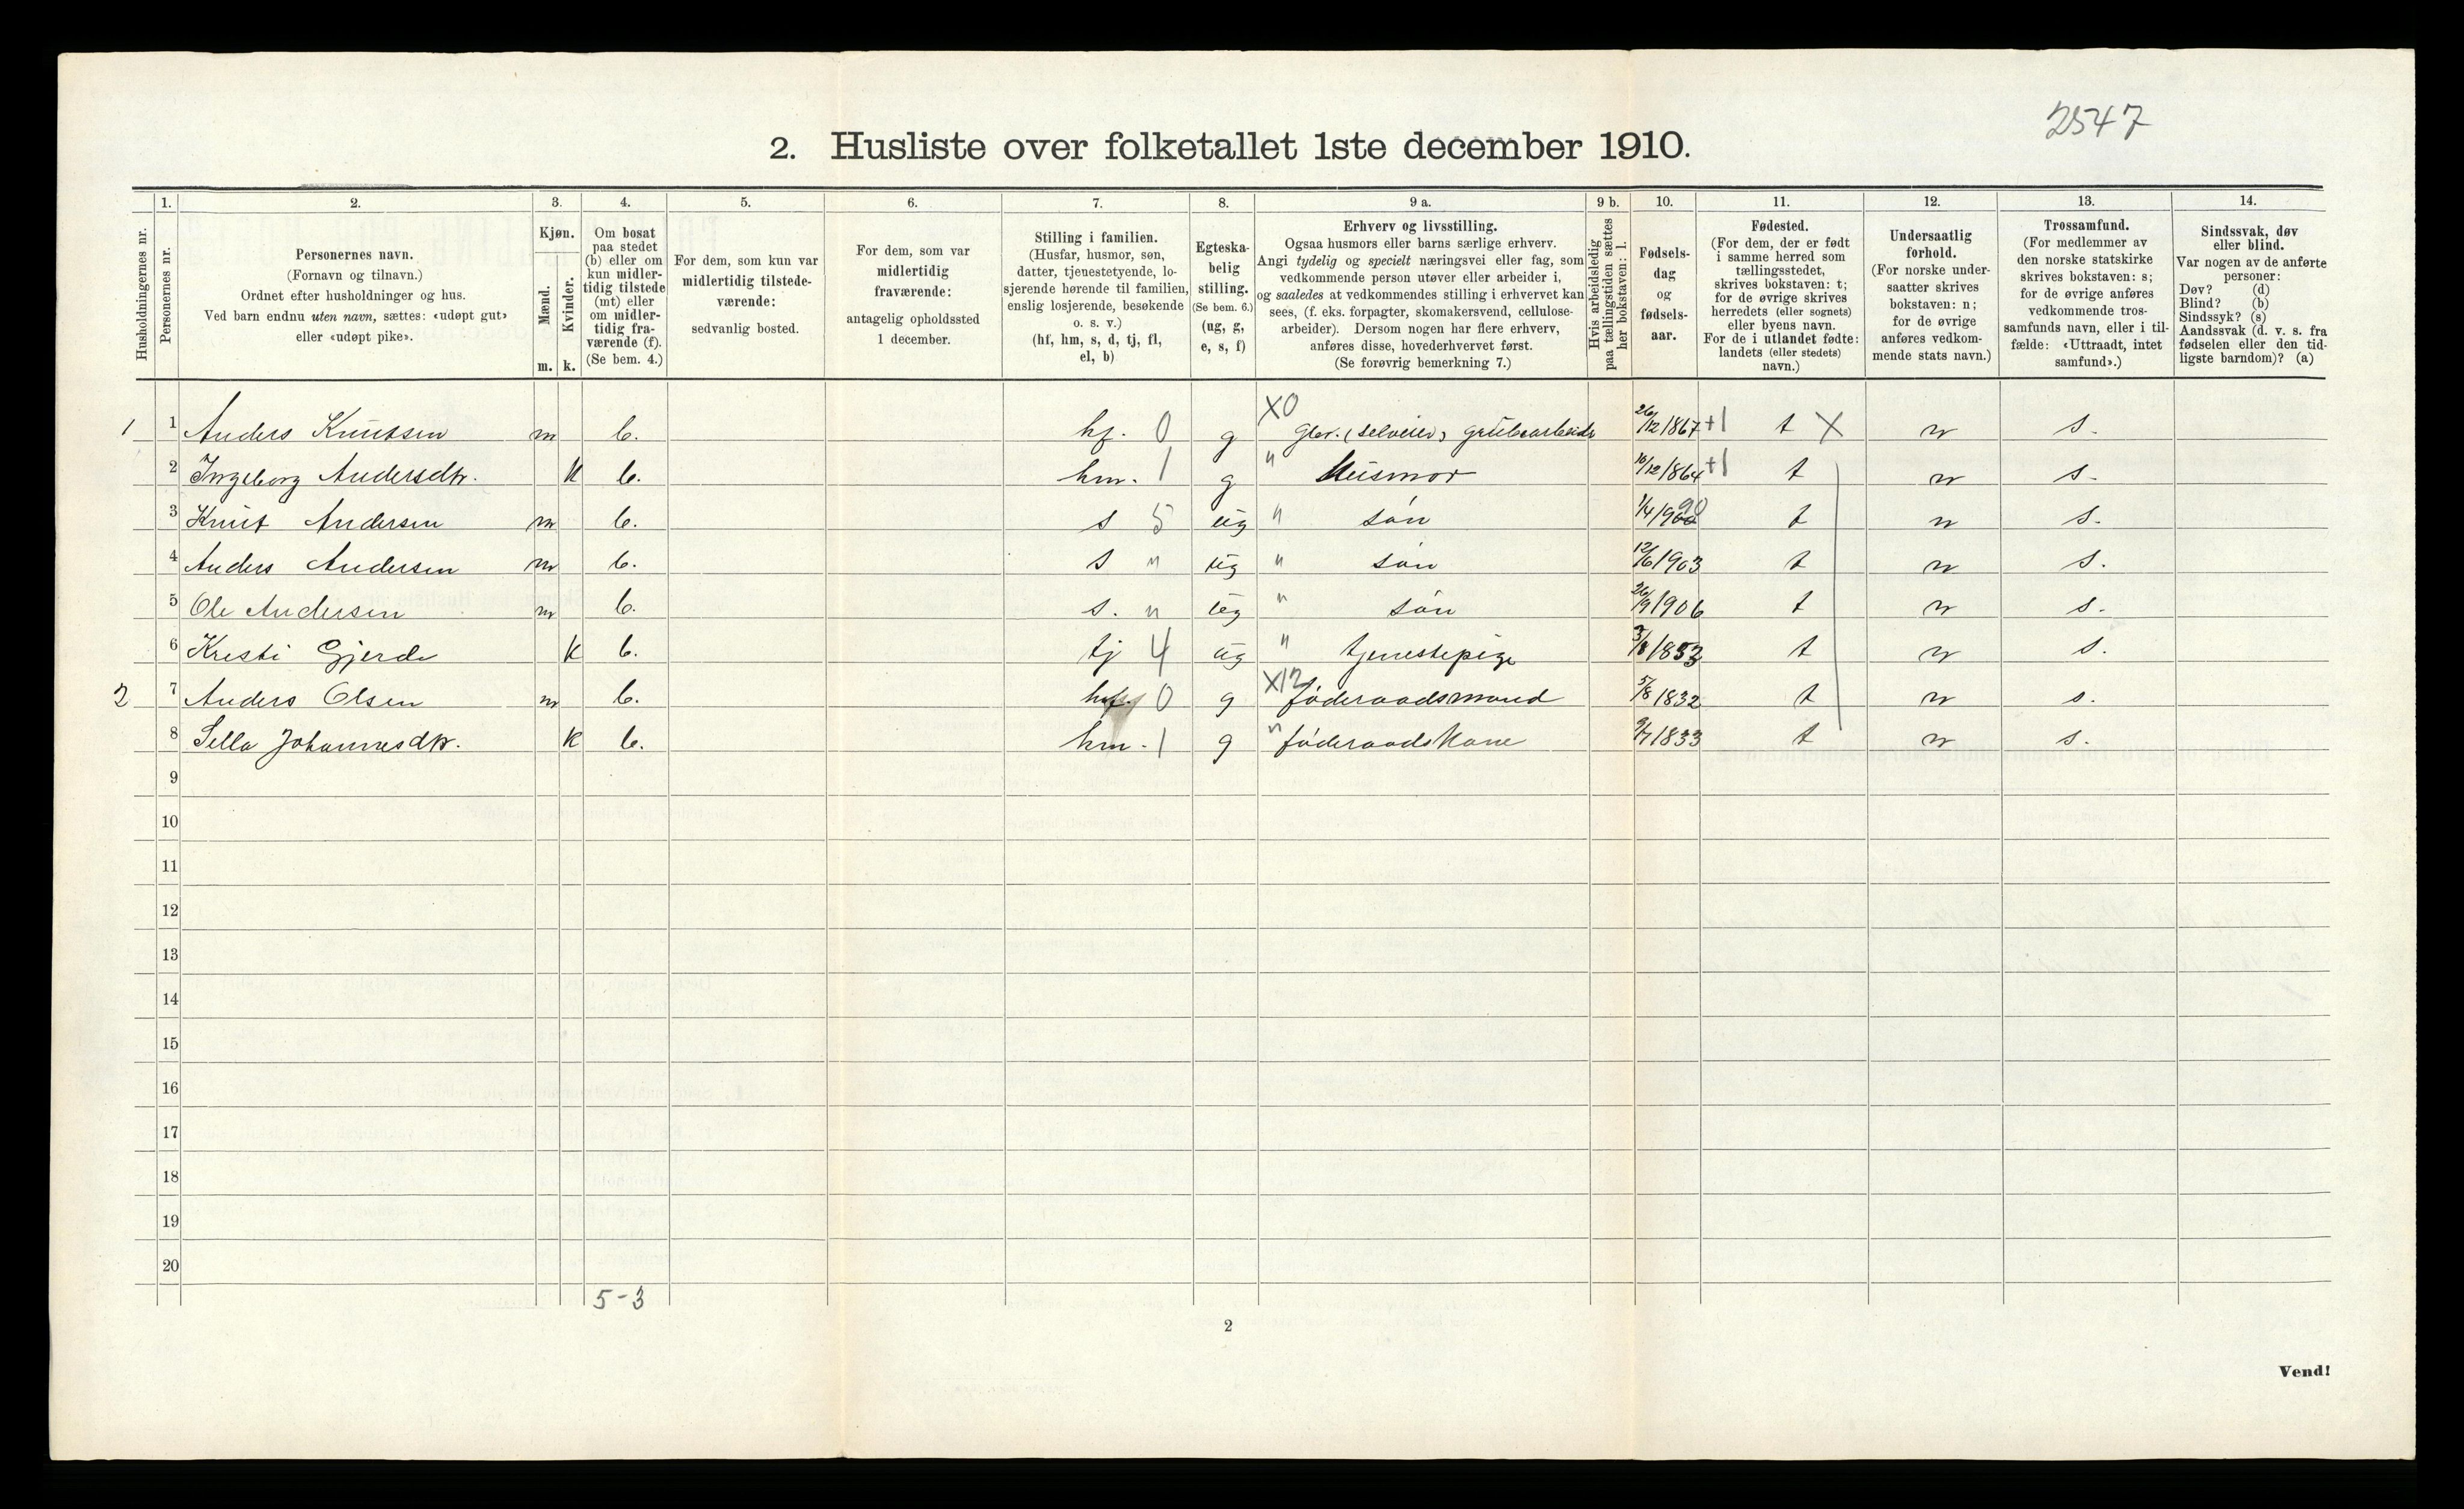 2547
2. Husliste over folketallet 1ste december 1910.
1. 2. 3. 4. 5. 6. 7. 8. 9 a. 9 b. 10. 11. 12. 13. 14.
Husholdningernes nr.
Personernes nr.
Personernes navn.
(Fornavn og tilnavn.)
Ordnet efter husholdninger og hus.
Ved barn endnu uten navn, sættes: «udøpt gut»
eller «udøpt pike».
Kjøn.
Mænd.
Kvinder.
m. k.
Om bosat
paa stedet
(b) eller om
kun midler-
tidig tilstede
(mt) eller
om midler-
tidig fra-
værende (f).
(Se bem. 4.)
For dem, som kun var
midlertidig tilstede-
værende:
sedvanlig bosted.
For dem, som var
midlertidig
fraværende:
antagelig opholdssted
1 december.
Stilling i familien.
(Husfar, husmor, søn,
datter, tjenestetyende, lo-
sjerende hørende til familien,
enslig losjerende, besøkende
o. s. v.)
(hf, hm, s, d, tj, fl,
el, b)
Egteska-
belig
stilling.
(Se bem. 6.)
(ug, g,
e, s, f)
Erhverv og livsstilling.
Ogsaa husmors eller barns særlige erhverv.
Angi tydelig og specielt næringsvei eller fag, som
vedkommende person utøver eller arbeider i,
og saaledes at vedkommendes stilling i erhvervet kan
sees, (f. eks. forpagter, skomakersvend, cellulose-
arbeider). Dersom nogen har flere erhverv,
anføres disse, hovederhvervet først.
(Se forøvrig bemerkning 7.)
Hvis arbeidsledig
paa tællingstiden sættes
her bokstaven: l.
Fødsels-
dag
og
fødsels-
aar.
Fødested.
(For dem, der er født
i samme herred som
tællingsstedet,
skrives bokstaven: t;
for de øvrige skrives
herredets (eller sognets)
eller byens navn.
For de i utlandet fødte:
landets (eller stedets)
navn.)
Undersaatlig
forhold.
(For norske under-
saatter skrives
bokstaven: n;
for de øvrige
anføres vedkom-
mende stats navn.)
Trossamfund.
(For medlemmer av
den norske statskirke
skrives bokstaven: s;
for de øvrige anføres
vedkommende tros-
samfunds navn, eller i til-
fælde: «Uttraadt, intet
samfund».)
Sindssvak, døv
eller blind.
Var nogen av de anførte
personer:
Døv? (d)
Blind? (b)
Sindssyk? (s)
Aandssvak (d. v. s. fra
fødselen eller den tid-
ligste barndom)? (a)
X0
1 1 Anders Knutsen m b. hf. 0 g gbr. (selveier) grubearbeider 26/12 1867 +1 t X n s.
2 Ingeborg Andersdtr. k b. hm. 1 g " Husmor 16/12 1864 +1 t n s.
3 Knut Andersen m b. s 5 ug " søn 1/4 1900 t n s.
4 Anders Andersen m b. s " ug " søn 12/6 1903 t n s.
5 Ole Andersen m b. s. " ug " søn 26/9 1906 t n s.
6 Kresti Gjerde k b. tj 4 ug " tjenestepige 3/8 1853 t n s.
2 7 Anders Olsen m b. hf. 0 g X12 føderaadsmand 5/8 1832 t n s.
8 Sella Johannesdtr. k b. hm. 1 g " føderaadskone 9/7 1833 t n s.
9
10
11
12
13
14
15
16
17
18
19
20
5-3
2
Vend!